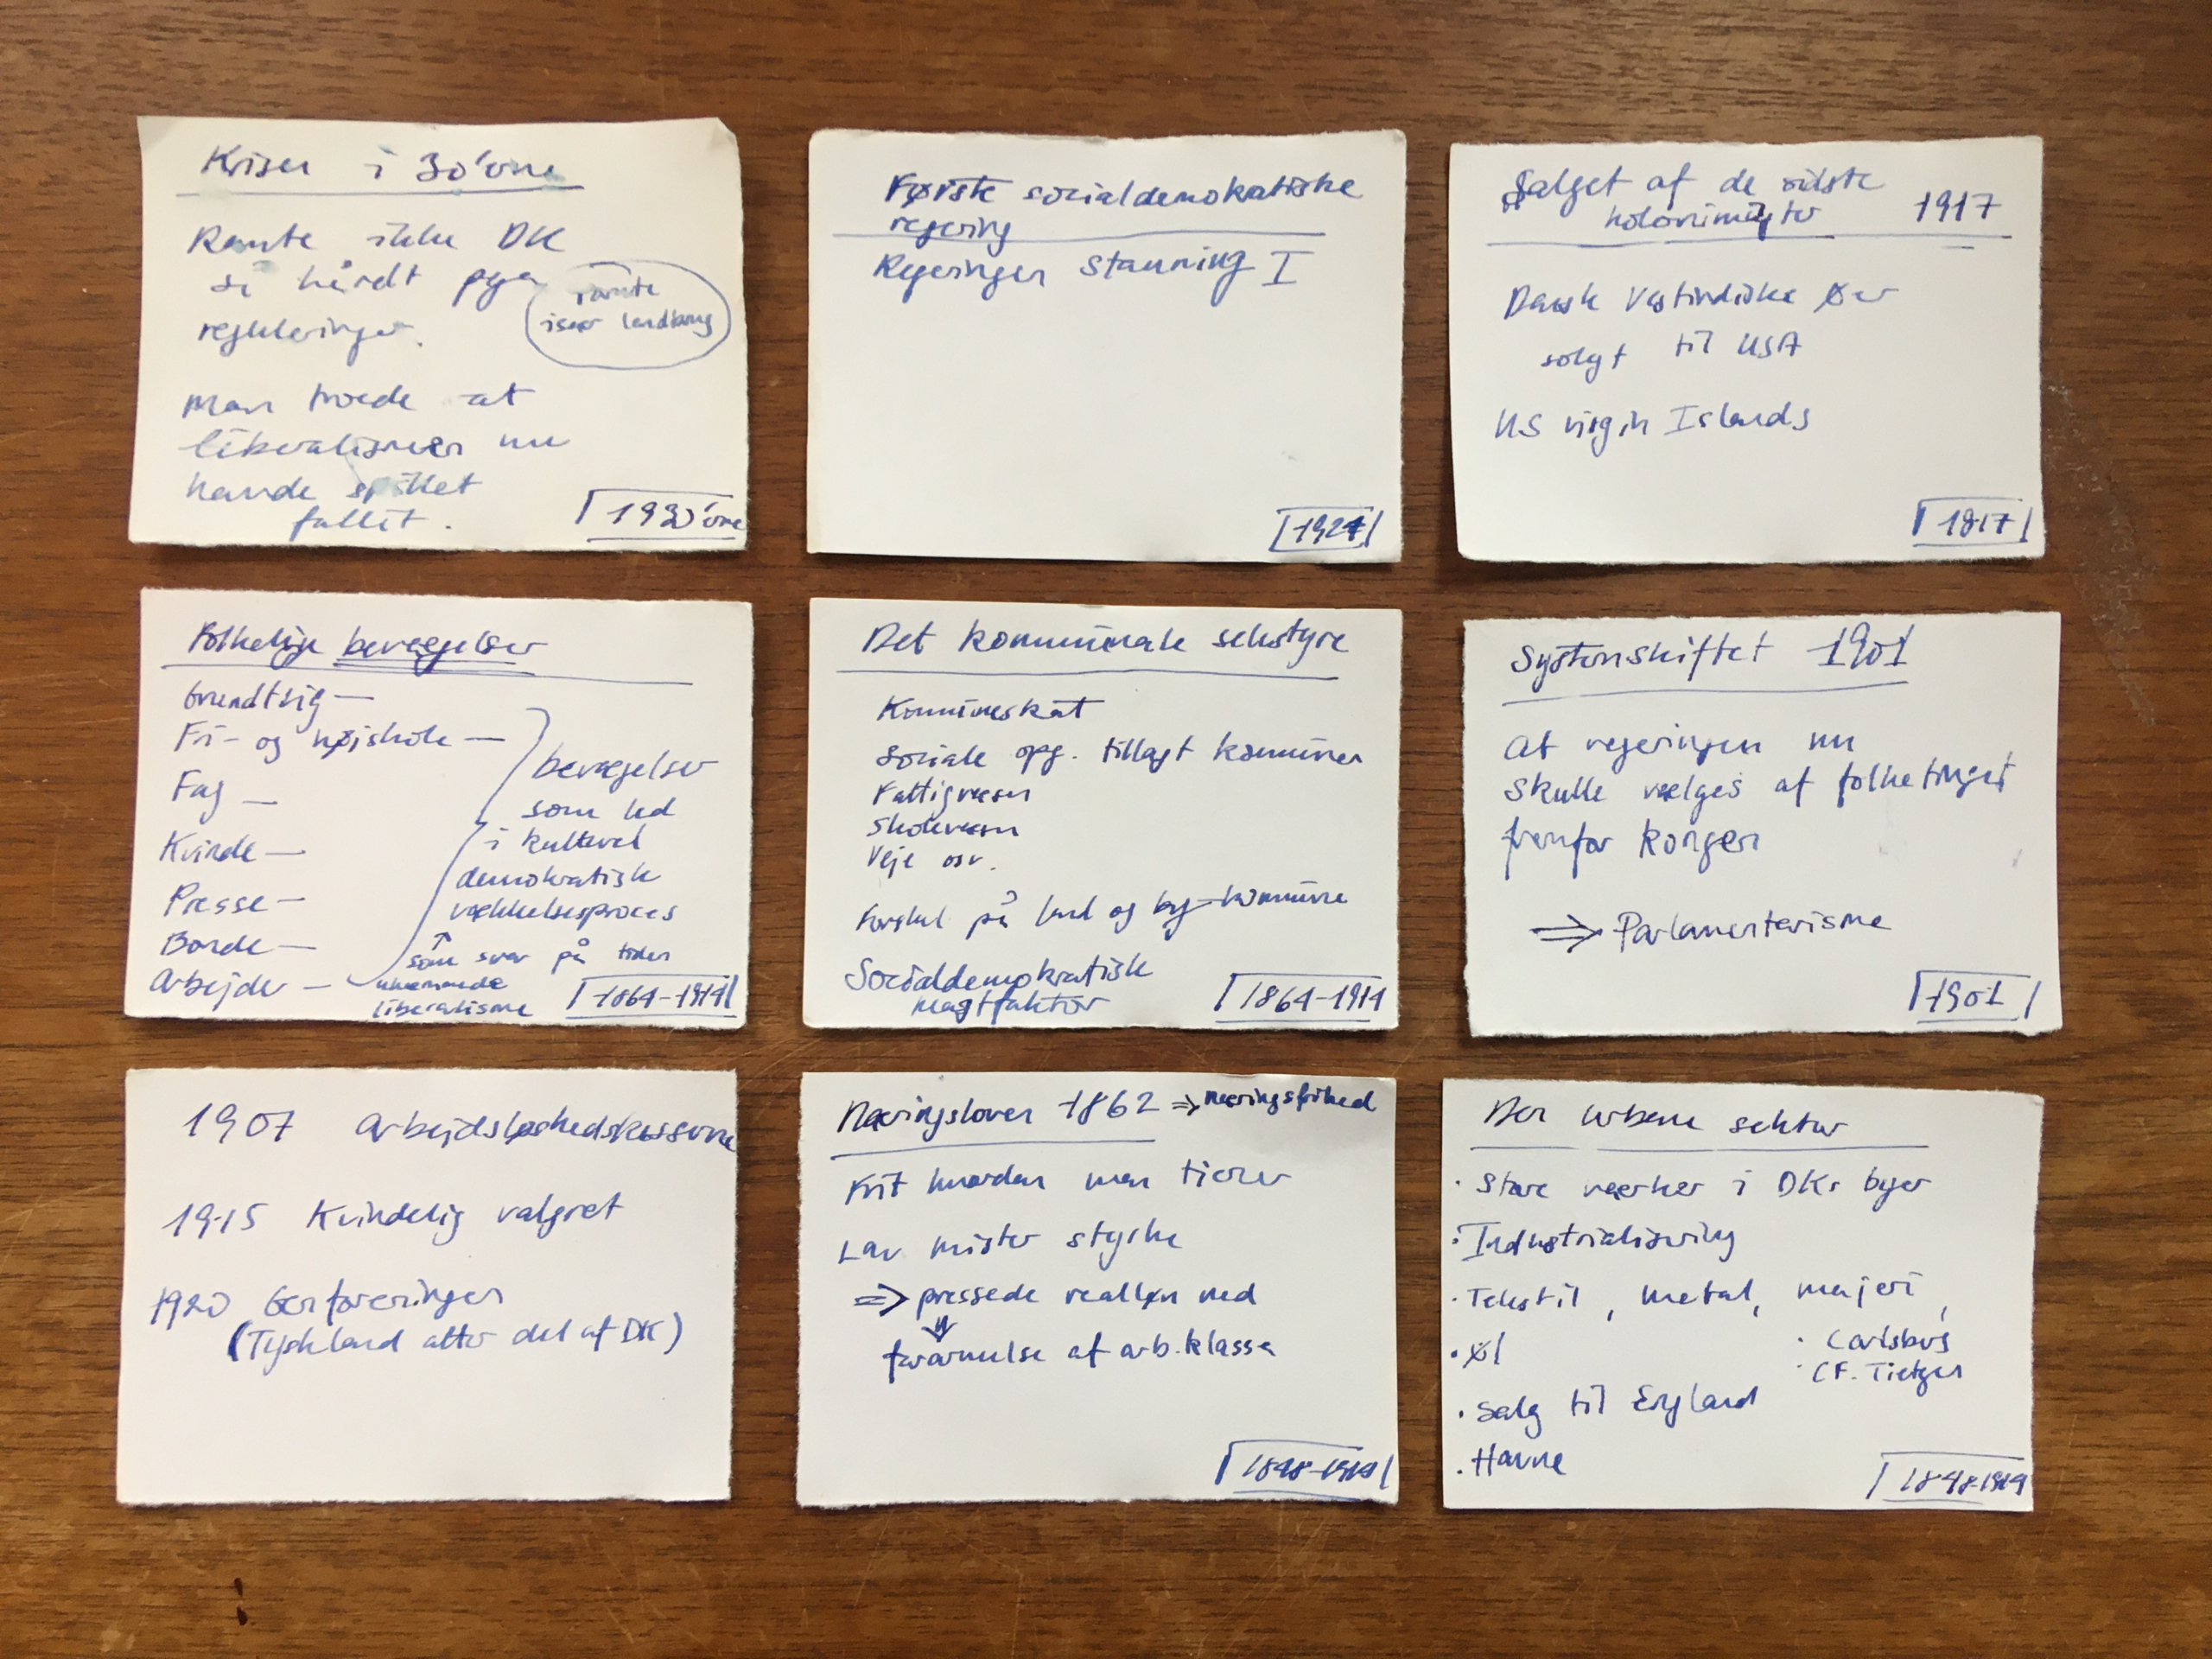 Krisen i 30'erne
Ramte ikke DK
så hårdt pga
reguleringer.
ramte
især landbrug
Man troede at
liberalismen nu
havde spillet
fallit.
1930'erne
Første socialdemokratiske
regering
Regeringen Stauning I
1924
Salget af de sidste
kolonimagter 1917
Dansk Vestindiske Øer
solgt til USA
US virgin Islands
1817
Folkelige bevægelser
Grundtvig—
Fri- og højskole—
Fag—
Kvinde—
Presse—
Bonde—
Arbejder—
bevægelser
som led
i kulturel
demokratisk
vækkelsesproces
↑
som svar på tiden
liberalisme
1864-1914
Det kommunale selvstyre
Kommuneskat
Sociale opg. tillagt kommunen
Fattigvæsen
Skolevæsen
Veje osv.
Forskel på land og by-kommune
Socialdemokratisk
magtfaktor
1864-1914
Systemskiftet 1901
At regeringen nu
skulle vælges af folketinget
fremfor kongen
⇒ Parlamentarisme
1901
1907 Arbejdsløshedskasserne
1915 Kvindelig valgret
1920 Genforeningen
(Tyskland atter del af DK)
Næringsloven 1862 ⇒ næringsfrihed
Frit hvordan man tjener
Lav mister styrke
⇒ pressede realløn ned
⇓
forarmelse af arb.klasse
1848-1914
Den urbane sektor
· Store værker i DKs byer
· Industrialisering
· Tekstil, metal, mejeri,
· Øl
· Carlsberg
· C.F. Tietgen
· Salg til England
· Havne
1848-1914